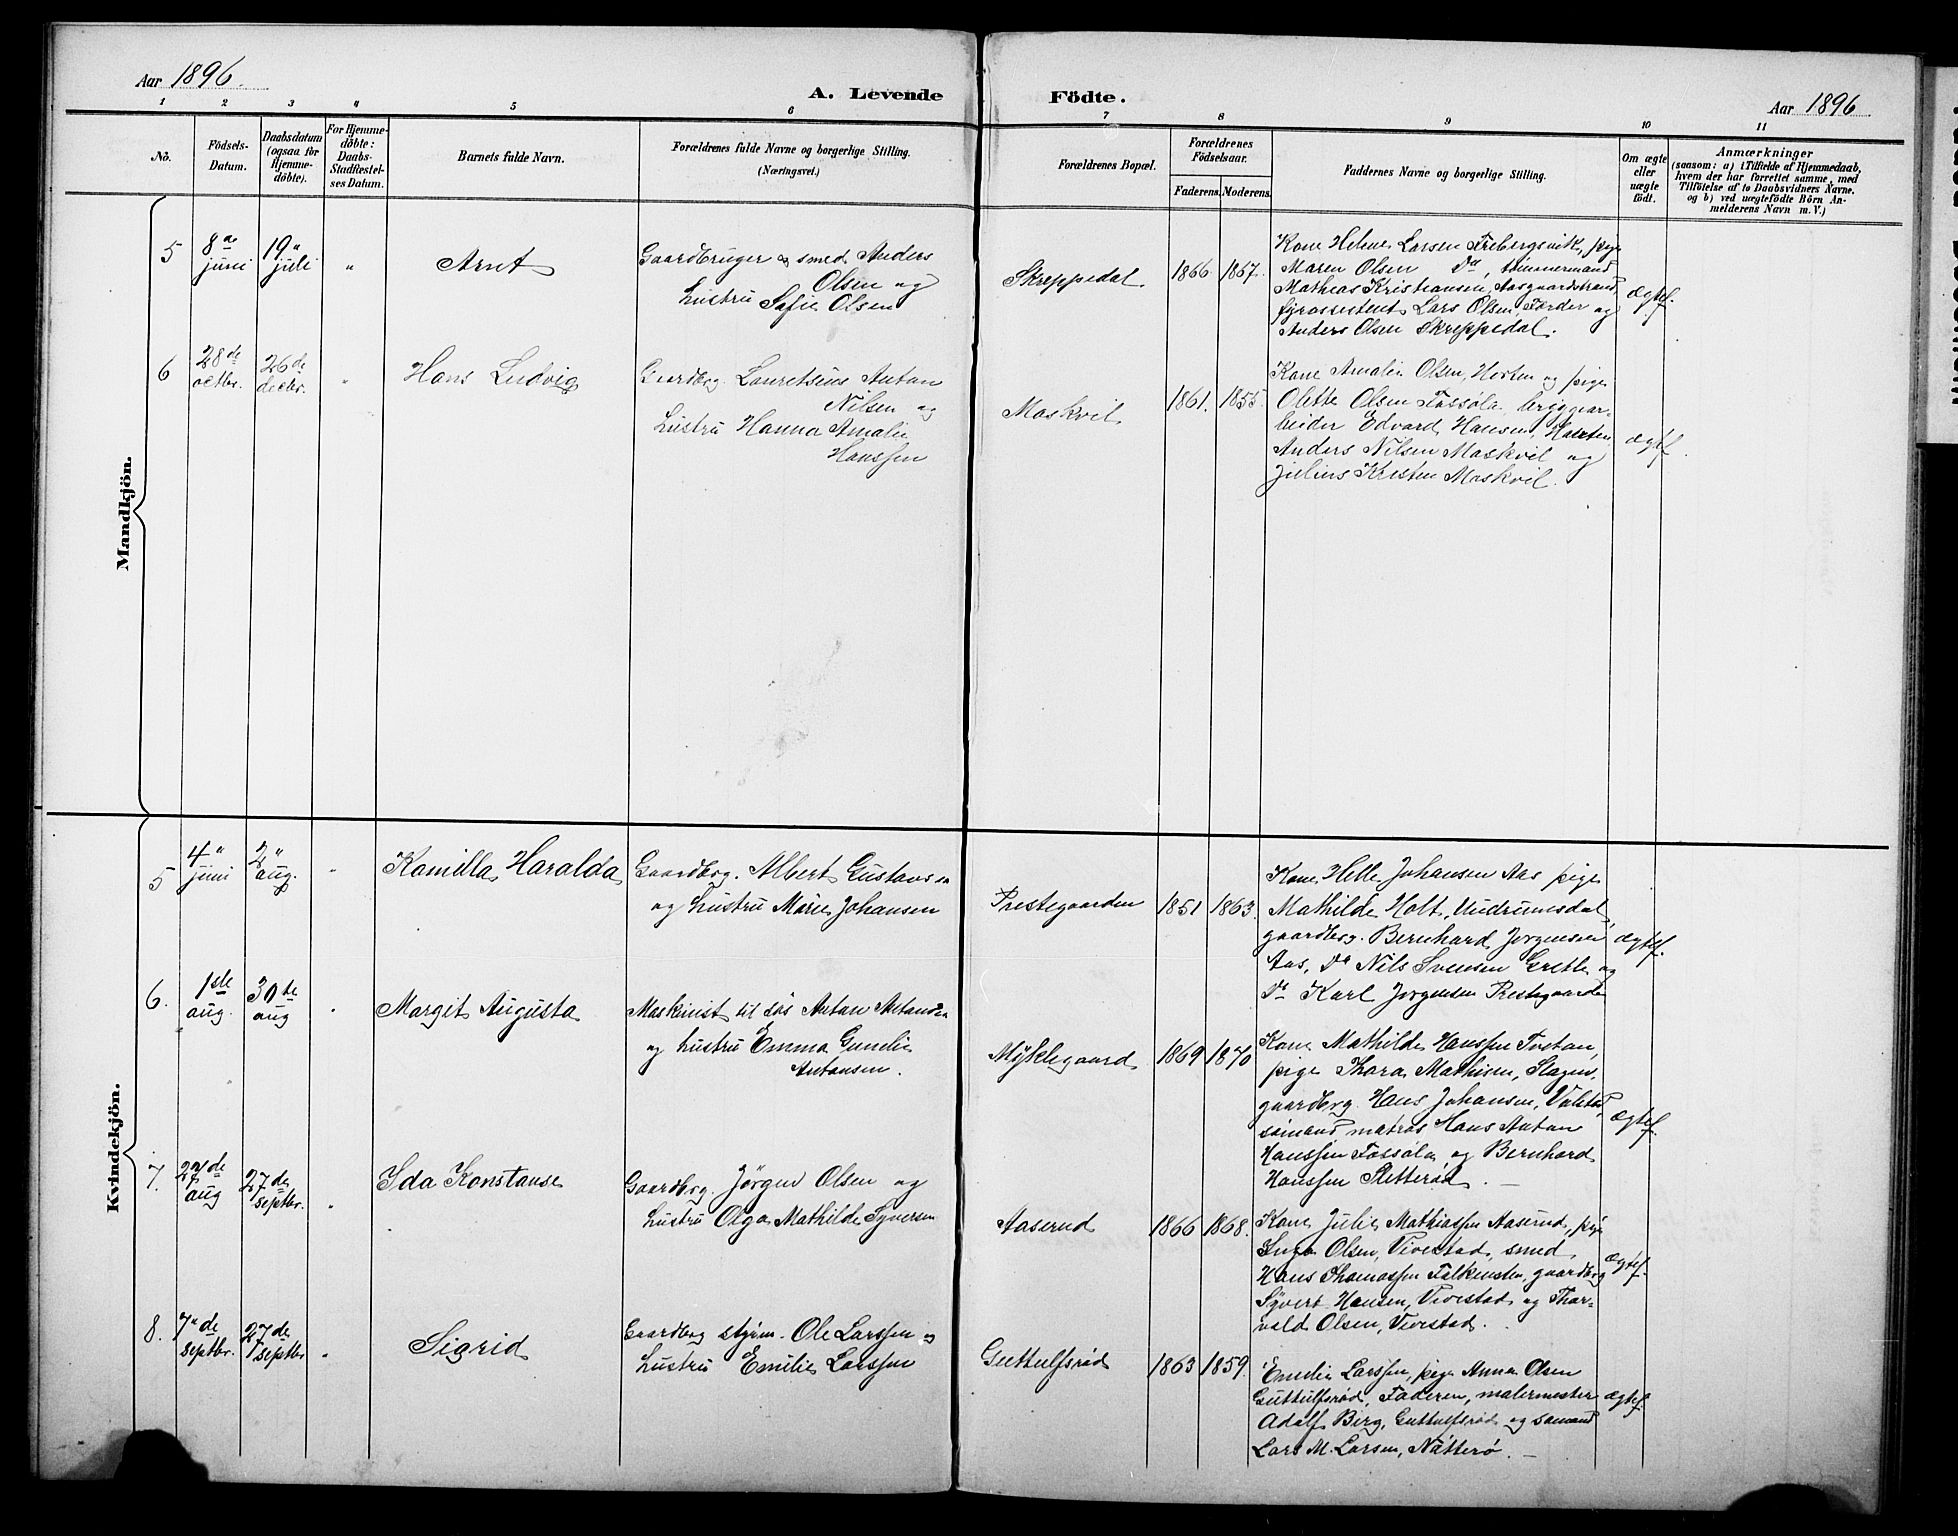 Aar 1896.
A. Levende Födte.
Aar 1896
1 2 3 4 5 6 7 8 9 10 11
No.
Födsels-
Datum.
Daabsdatum
(ogsaa for
Hjemme-
döbte).
For Hjemme-
döbte:
Daabs-
Stadfæstel-
ses Datum.
Barnets fulde Navn.
Forældrenes fulde Navne og borgerlige Stilling.
(Næringsvei.)
Forældrenes Bopæl.
Forældrenes
Födselsaar.
Faderens. Moderens.
Faddernes Navne og borgerlige Stilling.
Om ægte
eller
uægte
födt.
Anmærkninger
(saasom: a) i Tilfælde af Hjemmedaab,
hvem der har forrettet samme, med
Tilföielse af to Daabsvidners Navne.
og b) ved uægtefödte Börn An-
melderens Navn m. V.)
Mandkjön.
5
8de
juni
19"
juli
"
Arnt
Gaardbruger & smed Anders
Olsen og
hustru Sofie Olsen
Skreppedal.
1866 1867.
Kone Helene Larsen Frebergsvik, pige
Maren Olsen Do, tömmermand
Mathias Kristiansen, Aasgaardstrand
fyrassistent Lars Olsen, Færder og
Anders Olsen Skreppedal.
ægtef.
6
28de
octbr.
26de
decbr.
"
Hans Ludvig
Gaardbrg. Lauretsius Anton
Nilsen og
Hustru Hanna Amalie
Hanssen
Maskvil
1861. 1855.
Kone Amalie Olsen, Horten og pige
Olette Olsen Fossöla, bryggear-
beider Edvard Hansen, Horten
Anders Nilsen Maskvil og
Julius Kristen Maskvil.
ægtef.
Kvindekjön.
5
4"
juni
2"
aug.
"
Kamilla Haralda
Gaardbrg. Albert Gustavsen
og hustru Marie Johansen
Prestegaarden
1851 1863.
Kone Helle Johansen Aas pige
Mathilde Holt, Undrumsdal,
gaardbrg. Bernhard Jörgensen
Aas, Do Nils Svensen Grette og
Do Karl Jörgensen Prestegaarden
ægtef.
6.
1ste
aug.
30te
aug
"
Margit Augusta
Maskinist til sös Anton Antonsen
og hustru Emma Gunelie
Antonsen.
Myklegaard
1869 1870
Kone Mathilde Hanssen Tostan,
pige Thora Mathisen, Slagen,
gaardbrg. Hans Johansen, Valstad,
sömand matros Hans Anton
Hanssen Fossöla og Bernhard
Hanssen Sletteröd.
ægtef.
7.
22de
aug
27de
septbr.
"
Ida Konstanse
Gaardbrg. Jörgen Olsen og
hustru Olga Mathilde Syversen
Aaserud
1866 1868.
Kone Julie Mathiassen Aaserud, pige
Inga Olsen, Vivestad, smed
Hans Thomassen Falkensten, gaardbrg
Syvert Hansen, Vivestad og Thor-
vald Olsen, Vivestad.
ægtef.
8.
7de
septbr.
27de
septbr
"
Sigrid
Gaardbrg styrm. Ole Larssen og
hustru Emilie Larssen
Guttulfsröd
1863 1859.
Emilie Larssen, pige Anna Olsen
Guttulfsröd, Faderen, malermester
Adolf Berg, Guttulfsröd og sömand
Lars M. Larsen, Nötterö.
ægtef.